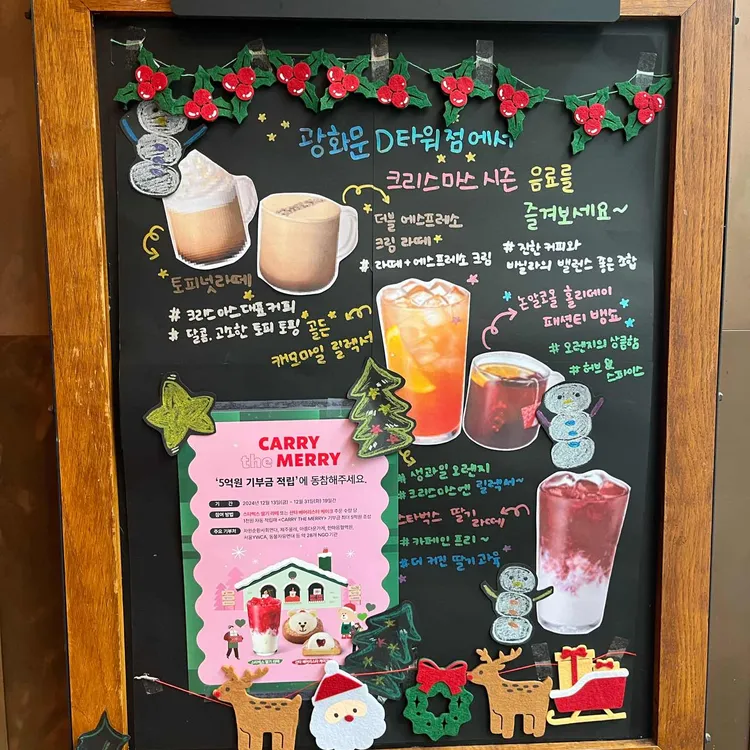 광화문 D타워점에서
크리스마스 시즌 음료를
즐겨보세요~
더블 에스프레소
크림 라떼
# 라떼 + 에스프레소 크림
# 진한 커피와
바닐라의 밸런스 좋은 조합
토피넛라떼
# 크리스마스 대표 커피
# 달콤, 고소한 토피 토핑
골든
캐모마일 릴렉서
논알코올 홀리데이
패션티 뱅쇼
# 오렌지의 상큼함
# 허브 & 스파이스
# 생과일 오렌지
# 크리스마스엔 릴렉서~
스타벅스 딸기
라떼
# 카페인 프리~
# 더 커진 딸기 과육
CARRY
the MERRY
'5억원 기부금 적립'에 동참해주세요.
기 간 2024년 12월 13일(금) ~ 12월 31일(화) 19일간
참여 방법
1천원 자동 적립해 <CARRY THE MERRY> 기부금 최대 5억원 조성
주요 기부처
서울YWCA, 동물자유연대 등 약 28개 NGO 기관